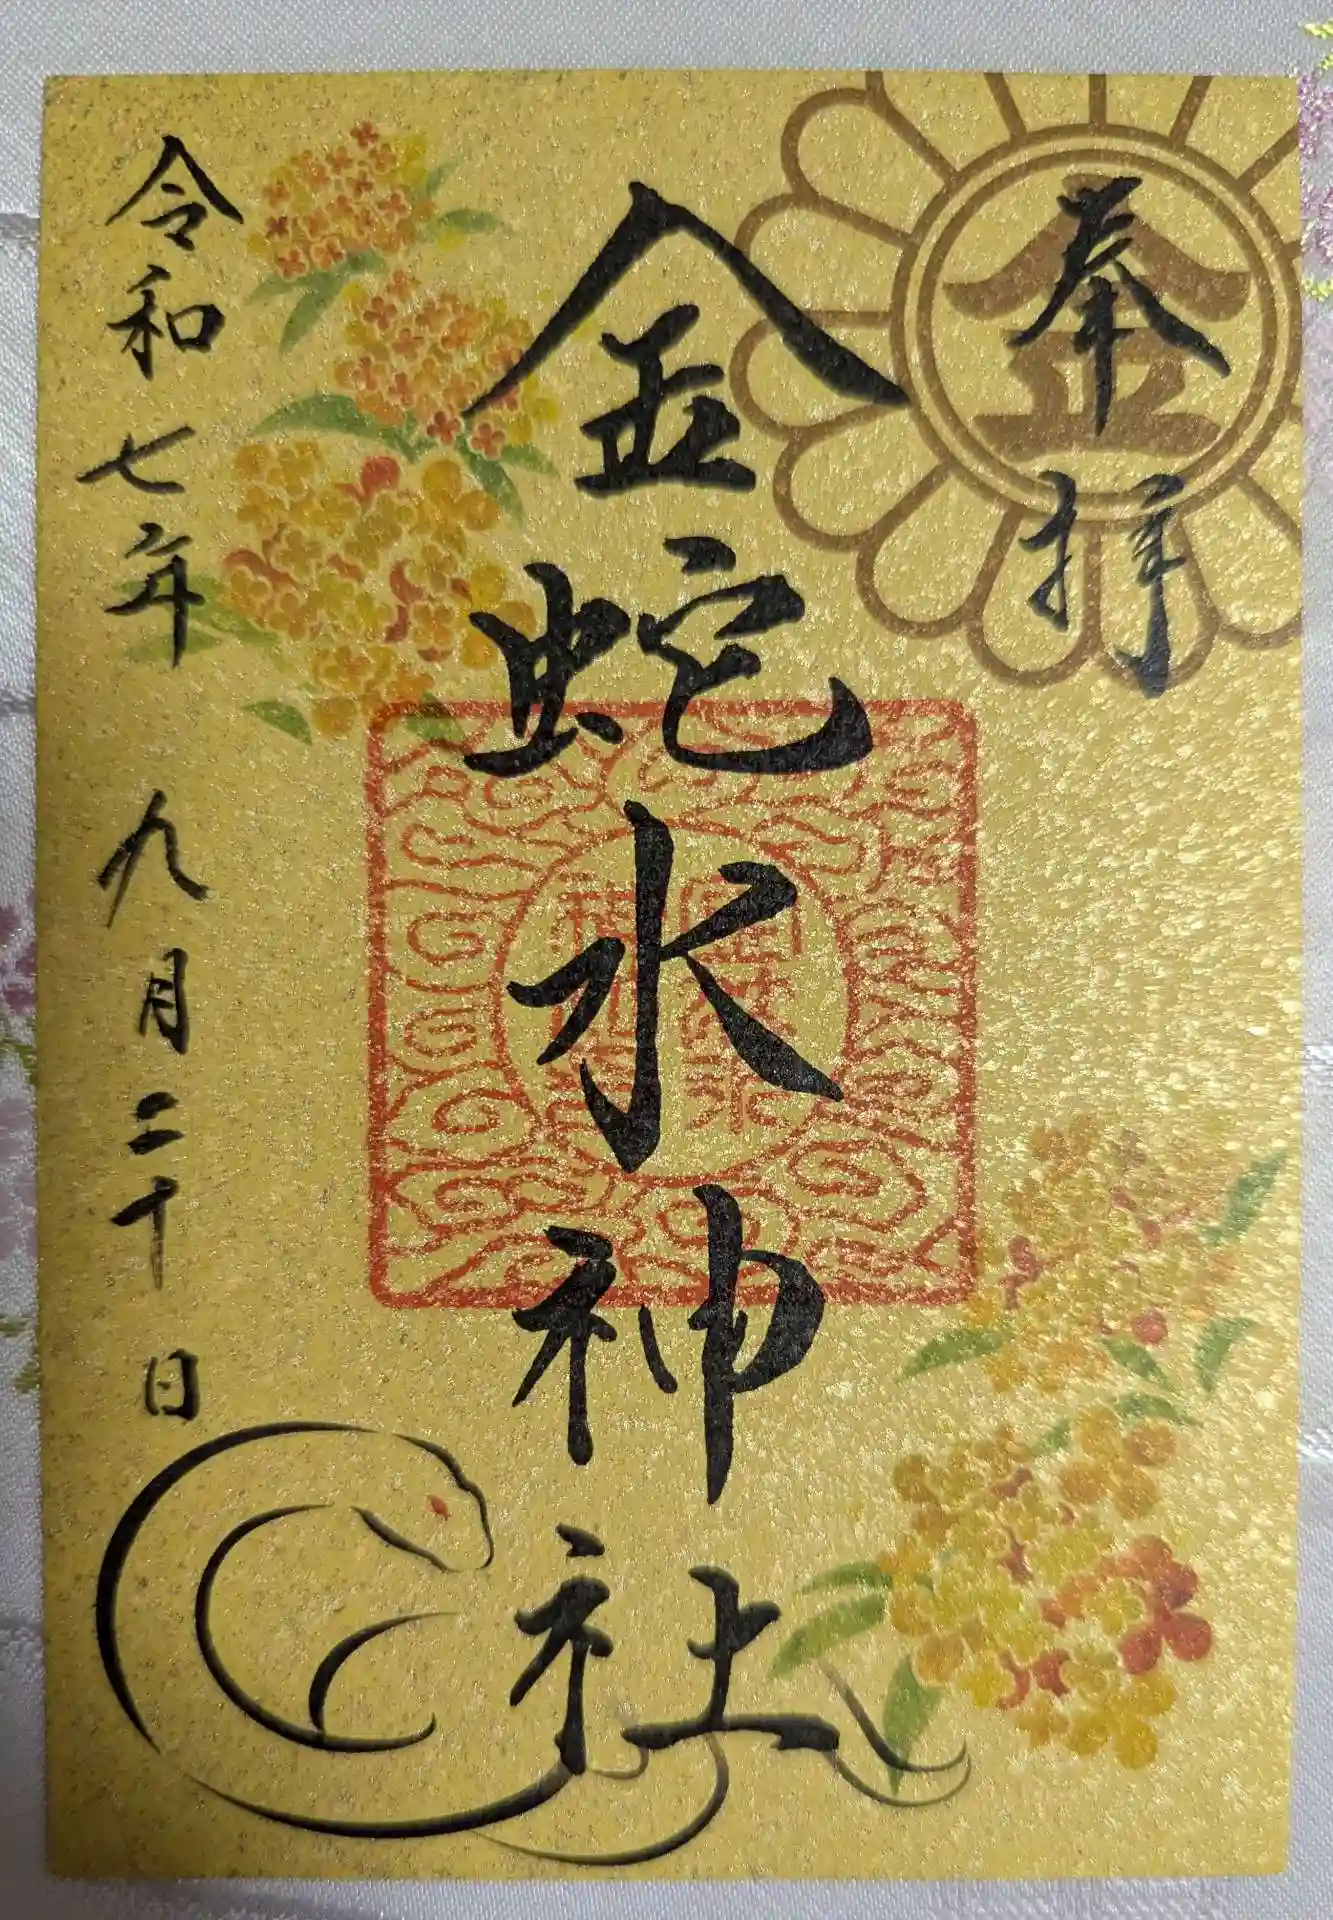 奉拝
金
金蛇水神社
令和七年九月二十日